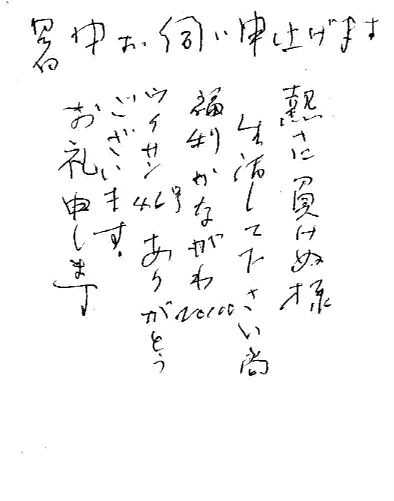 暑中お伺い申上げます
熱さに負けぬ様
生活して下さい尚
福利かながわ
ウイサン46号ありがとう
ございます。
お礼申します